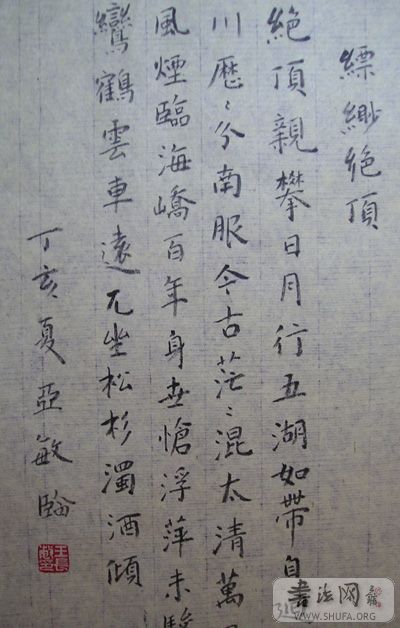 縹緲絶頂
絶頂親攀日月行五湖如帶自
川歷〻分南服今古茫〻混太清萬
風煙臨海嶠百年身世愴浮萍未
鸞鶴雲車遠兀坐松杉濁酒傾
丁亥夏亞敏
書法网
WWW.SHUFA.ORG